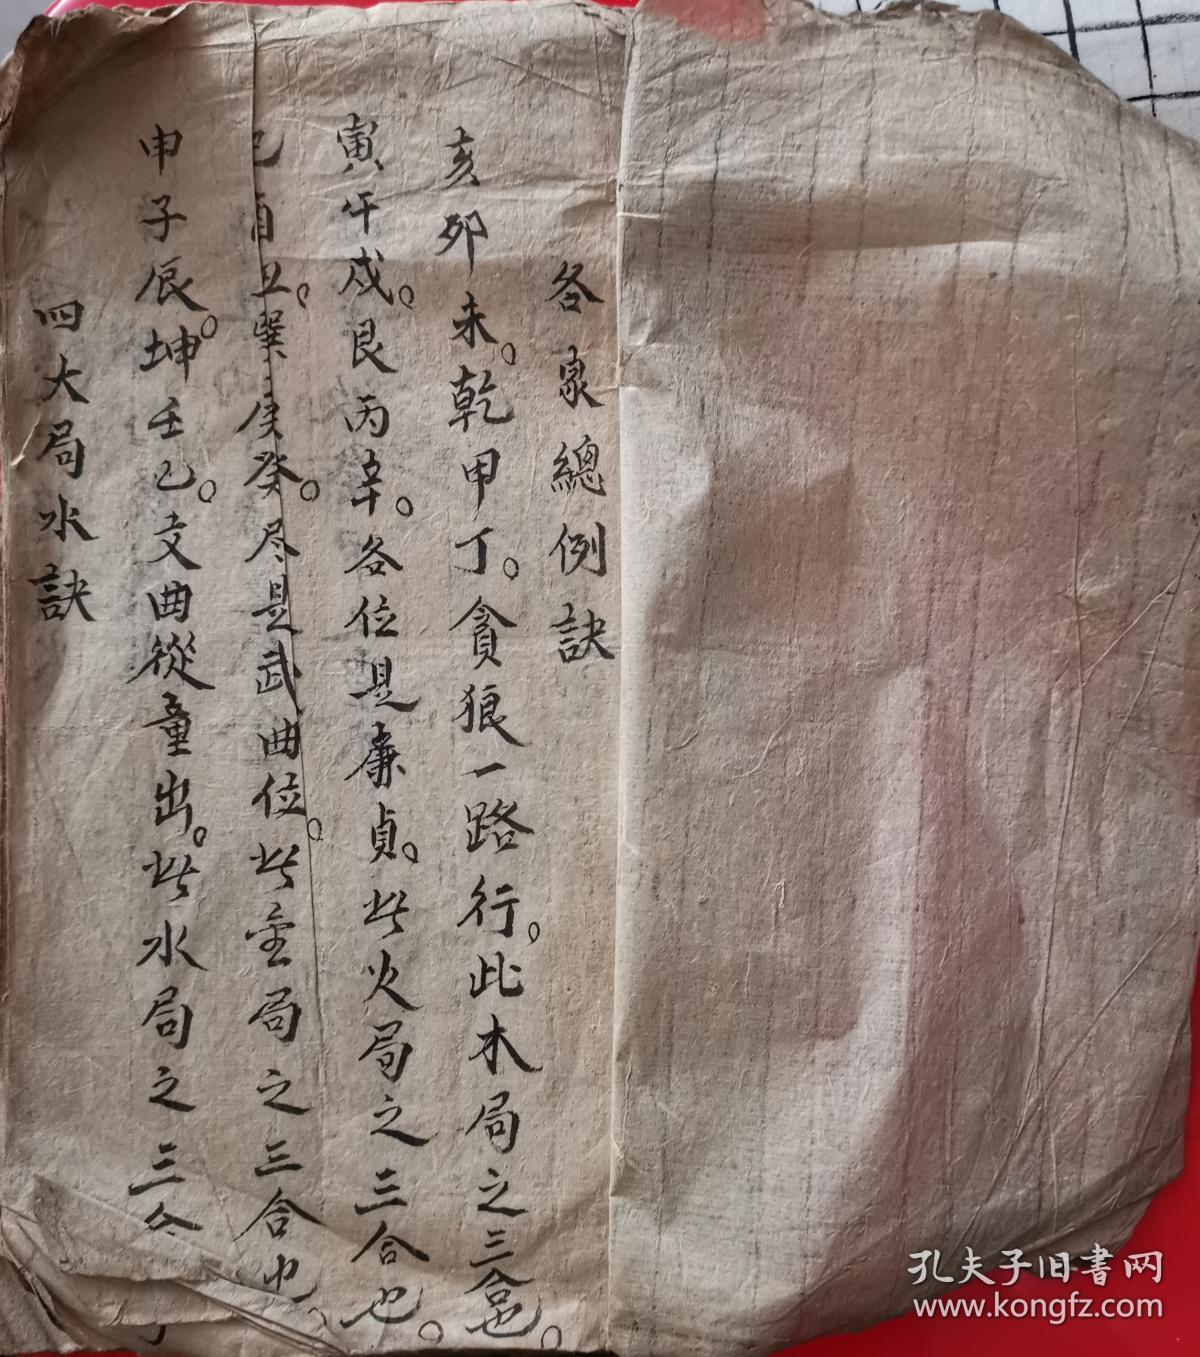 各泉總例訣
亥卯未。乾甲丁。貪狼一路行。此木局之三合也。
寅午戌。艮丙辛。各位是廉貞。此火局之三合也。
巳酉丑。巽庚癸。尽是武曲位。此金局之三合也。
申子辰。坤壬乙。文曲從童出。此水局之三合
四大局水訣
孔夫子旧书网
www.kongfz.com